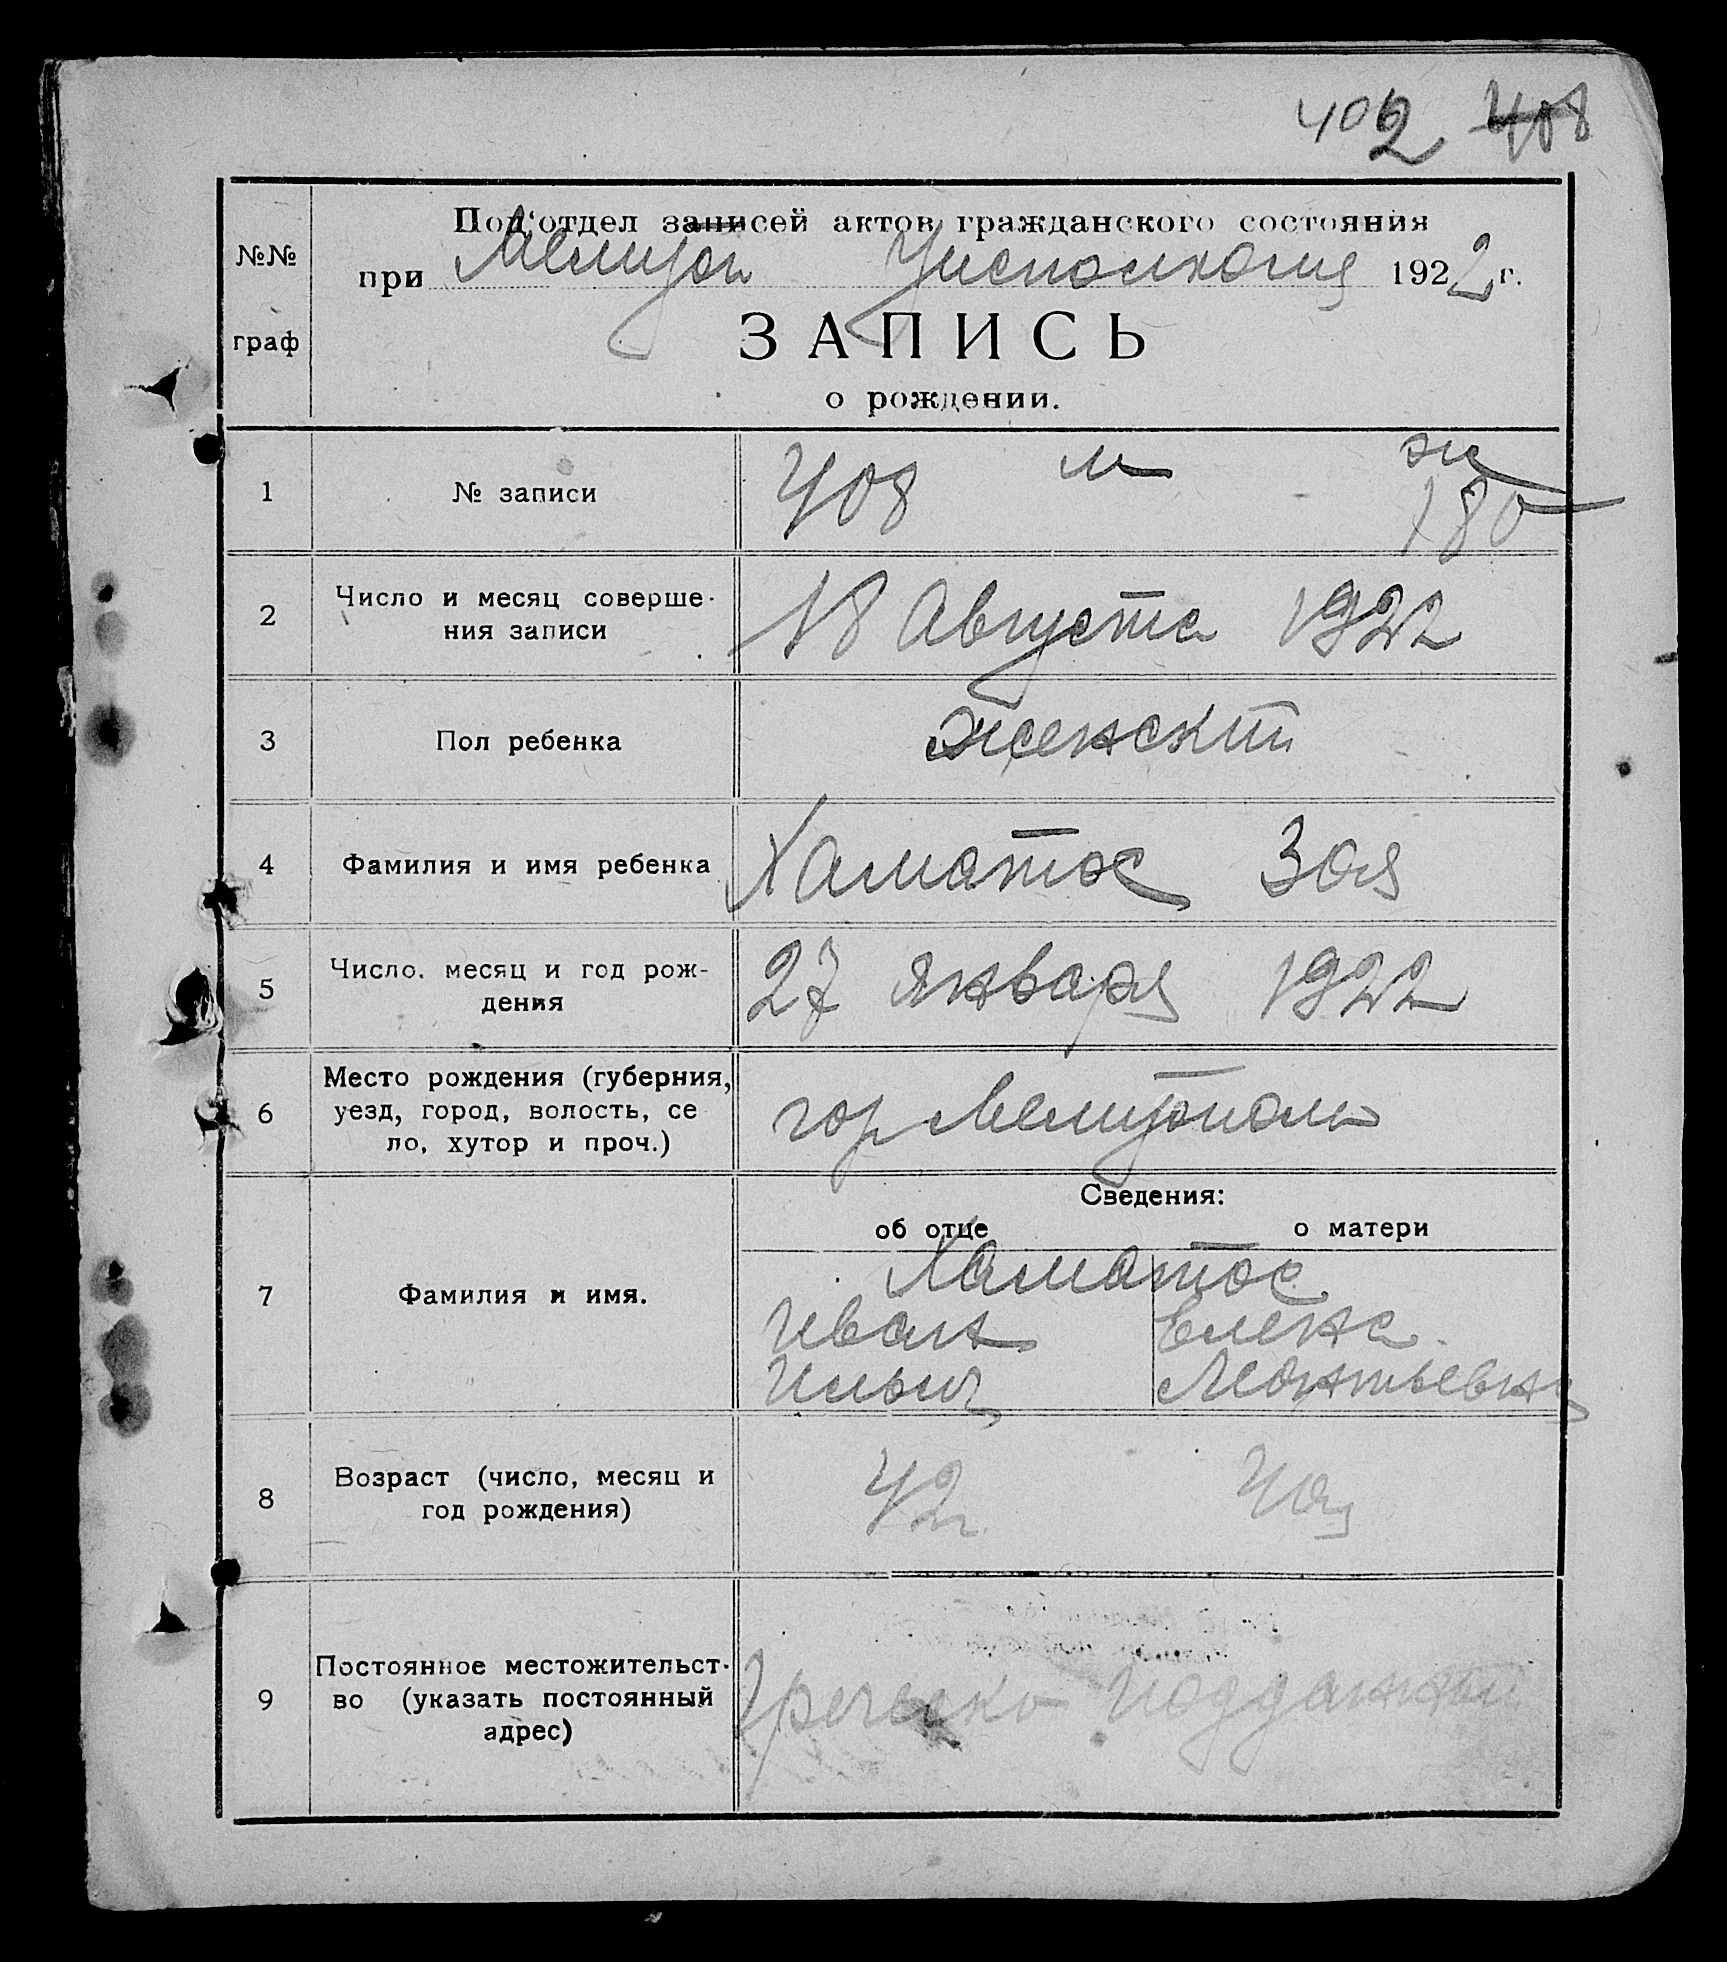 402 408
Под'отдел записей актов гражданского состояния
№№
при Мелитоп Уисполкома 1922 г.
граф
ЗАПИСЬ
о рождении.
1 № записи 408 м ж 180
2 Число и месяц соверше-
ния записи 18 Августа 1922
3 Пол ребенка женский
4 Фамилия и имя ребенка Хаматос Зоя
5 Число. месяц и год рож-
дения 27 января 1922
6 Место рождения (губерния,
уезд, город, волость, се
ло, хутор и проч.) гор Мелитополь
Сведения:
об отце о матери
7 Фамилия и имя. Хаматос
Иван Елена
Ильич Леонтьевна
8 Возраст (число, месяц и
год рождения) 42
9 Постоянное местожительст-
во (указать постоянный
адрес) Греческо подданный